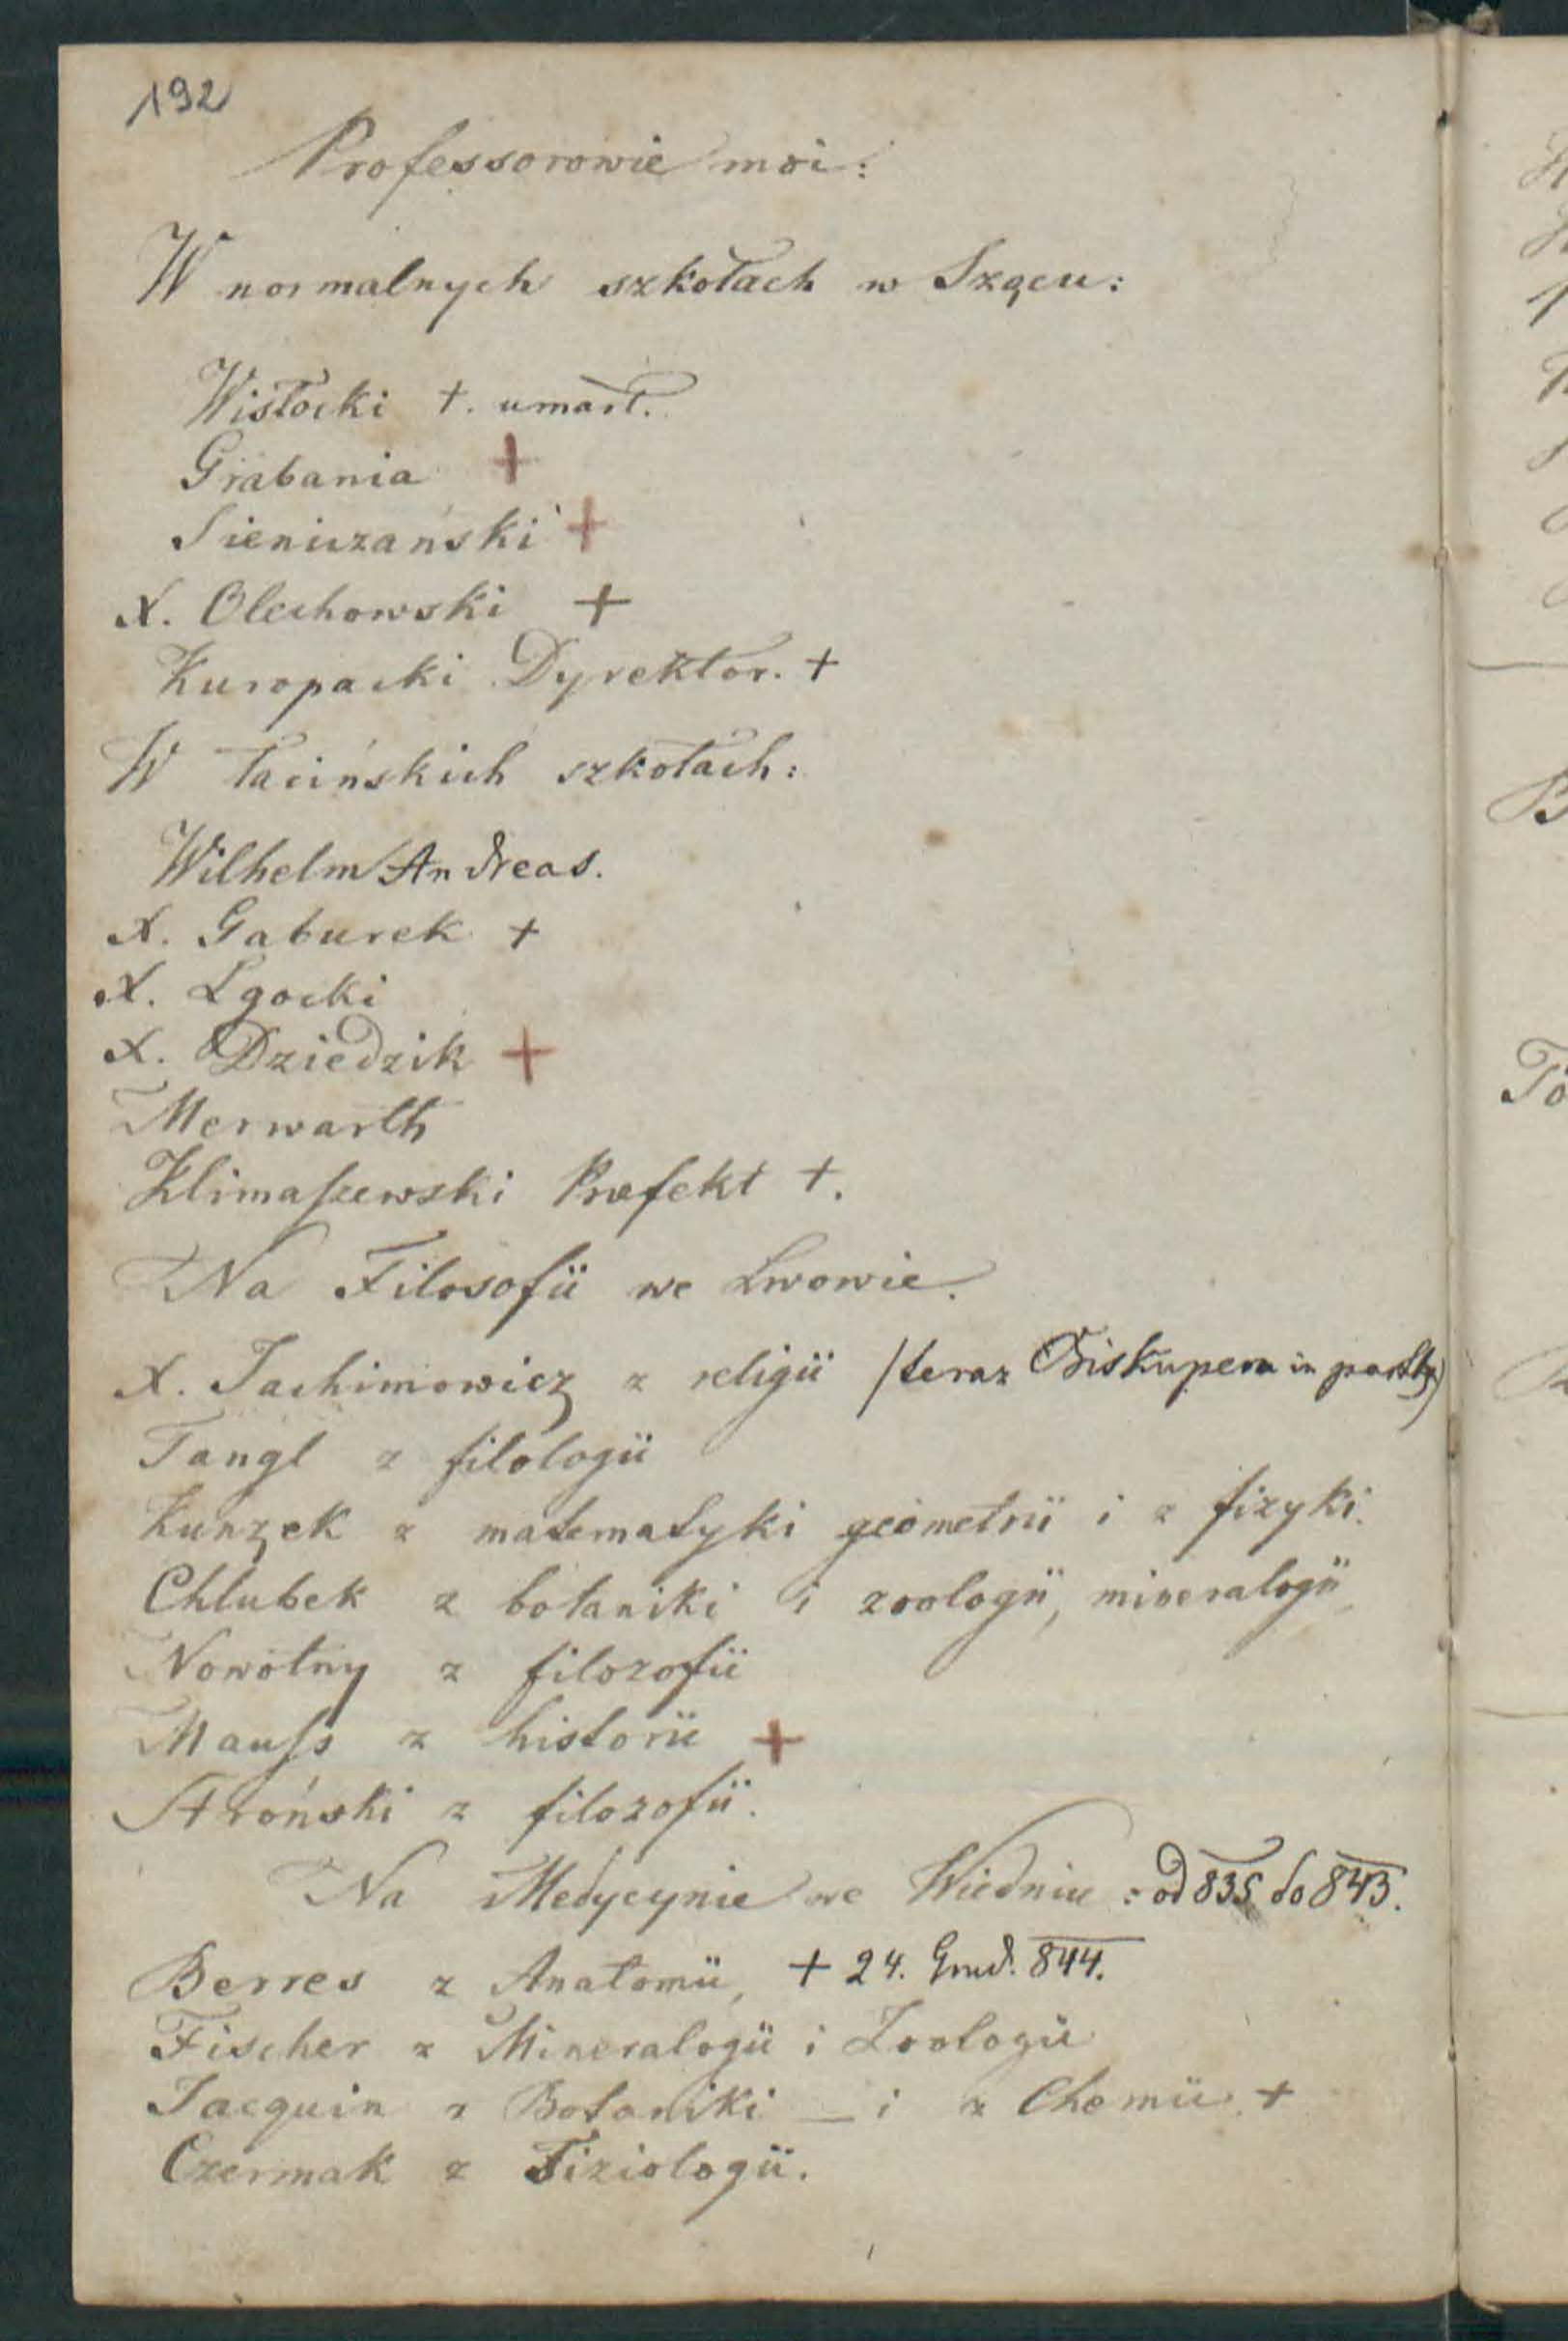 192
Professorowie moi:
W normalnych szkołach w Szączu:
Wisłocki +. umarł.
Grabania +
Sieniczański +
X. Olechowski +
Kuropacki Dyrektor. +
W łacińskich szkołach:
Wilhelm Andreas.
X. Gaburek +
X. Lgocki
X. Dziedzik +
Merwarth
Klimaszewski Præfekt +.
Na Filosofii we Lwowie.
X. Jachimowicz z religii /teraz Biskupem in partb.)
Tangl z filologii
Kunzek z matematyki geometrii i z fizyki.
Chlubek z botaniki i zoologii, mineralogii
Nowotny z filozofii
Mauss z historii +
Stroński z filozofii.
Na Medycynie we Wiedniu : od 835 do 843.
Berres z Anatomii, + 24. Grud. 844.
Fischer z Mineralogii i Zoologii
Jacquin z Botaniki _ i z Chemii. +
Czermak z Fiziologii.